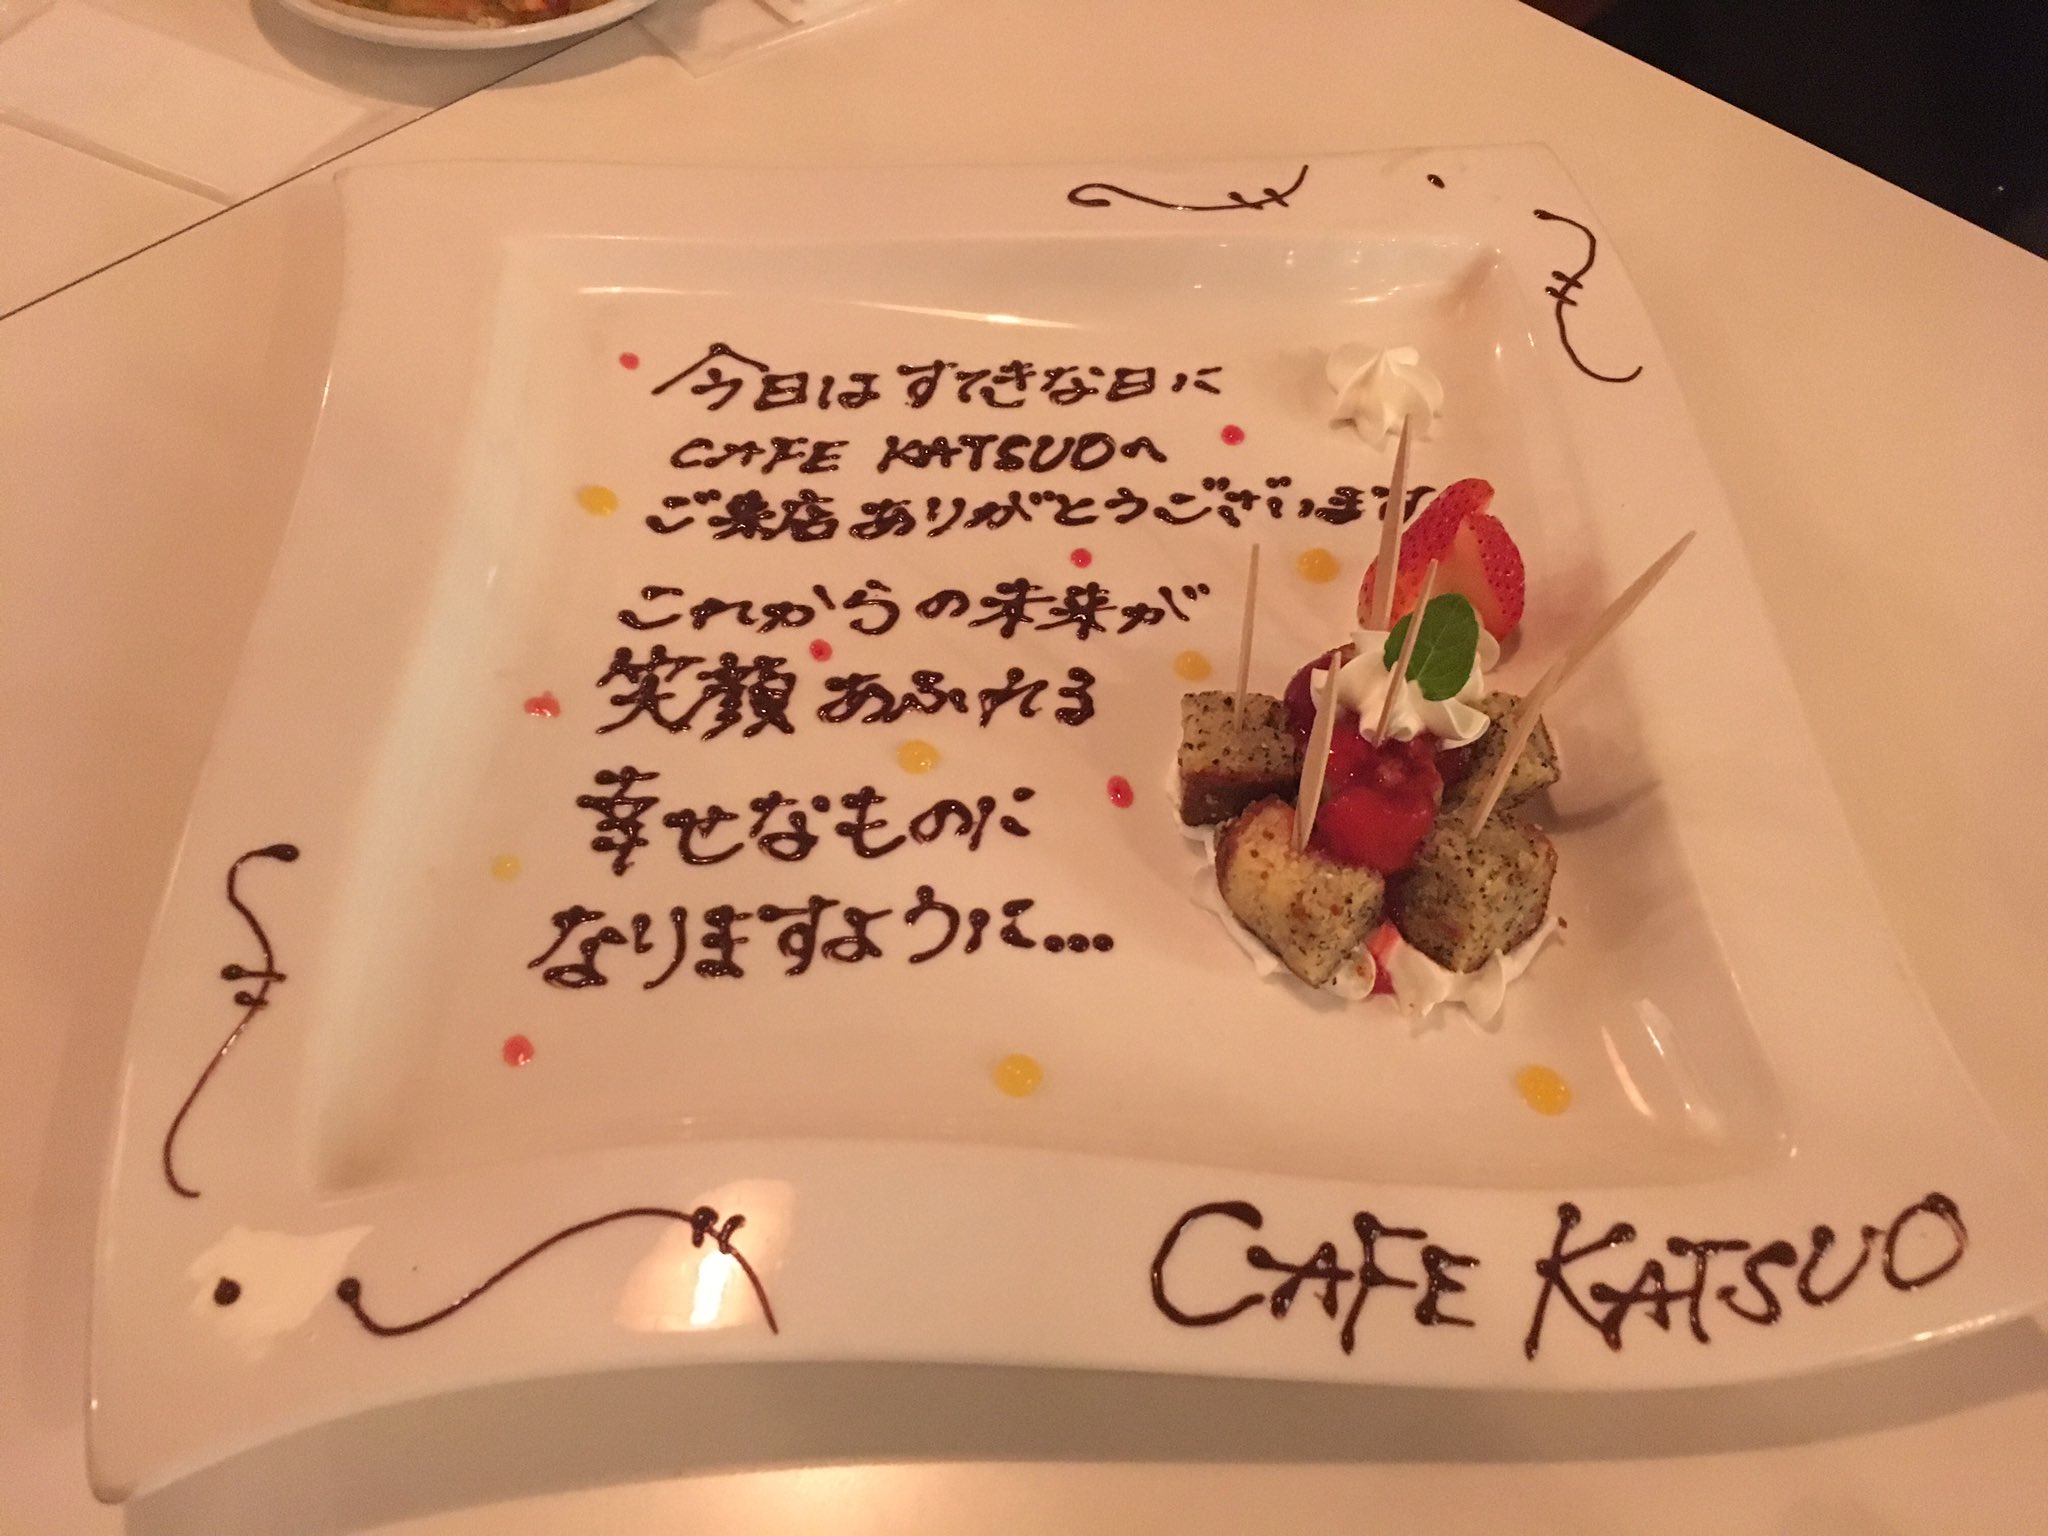 今日はすてきな日に
CAFE KATSUOへ
ご来店ありがとうございます
これからの未来が
笑顔あふれる
幸せなものに
なりますように...
CAFE KATSUO